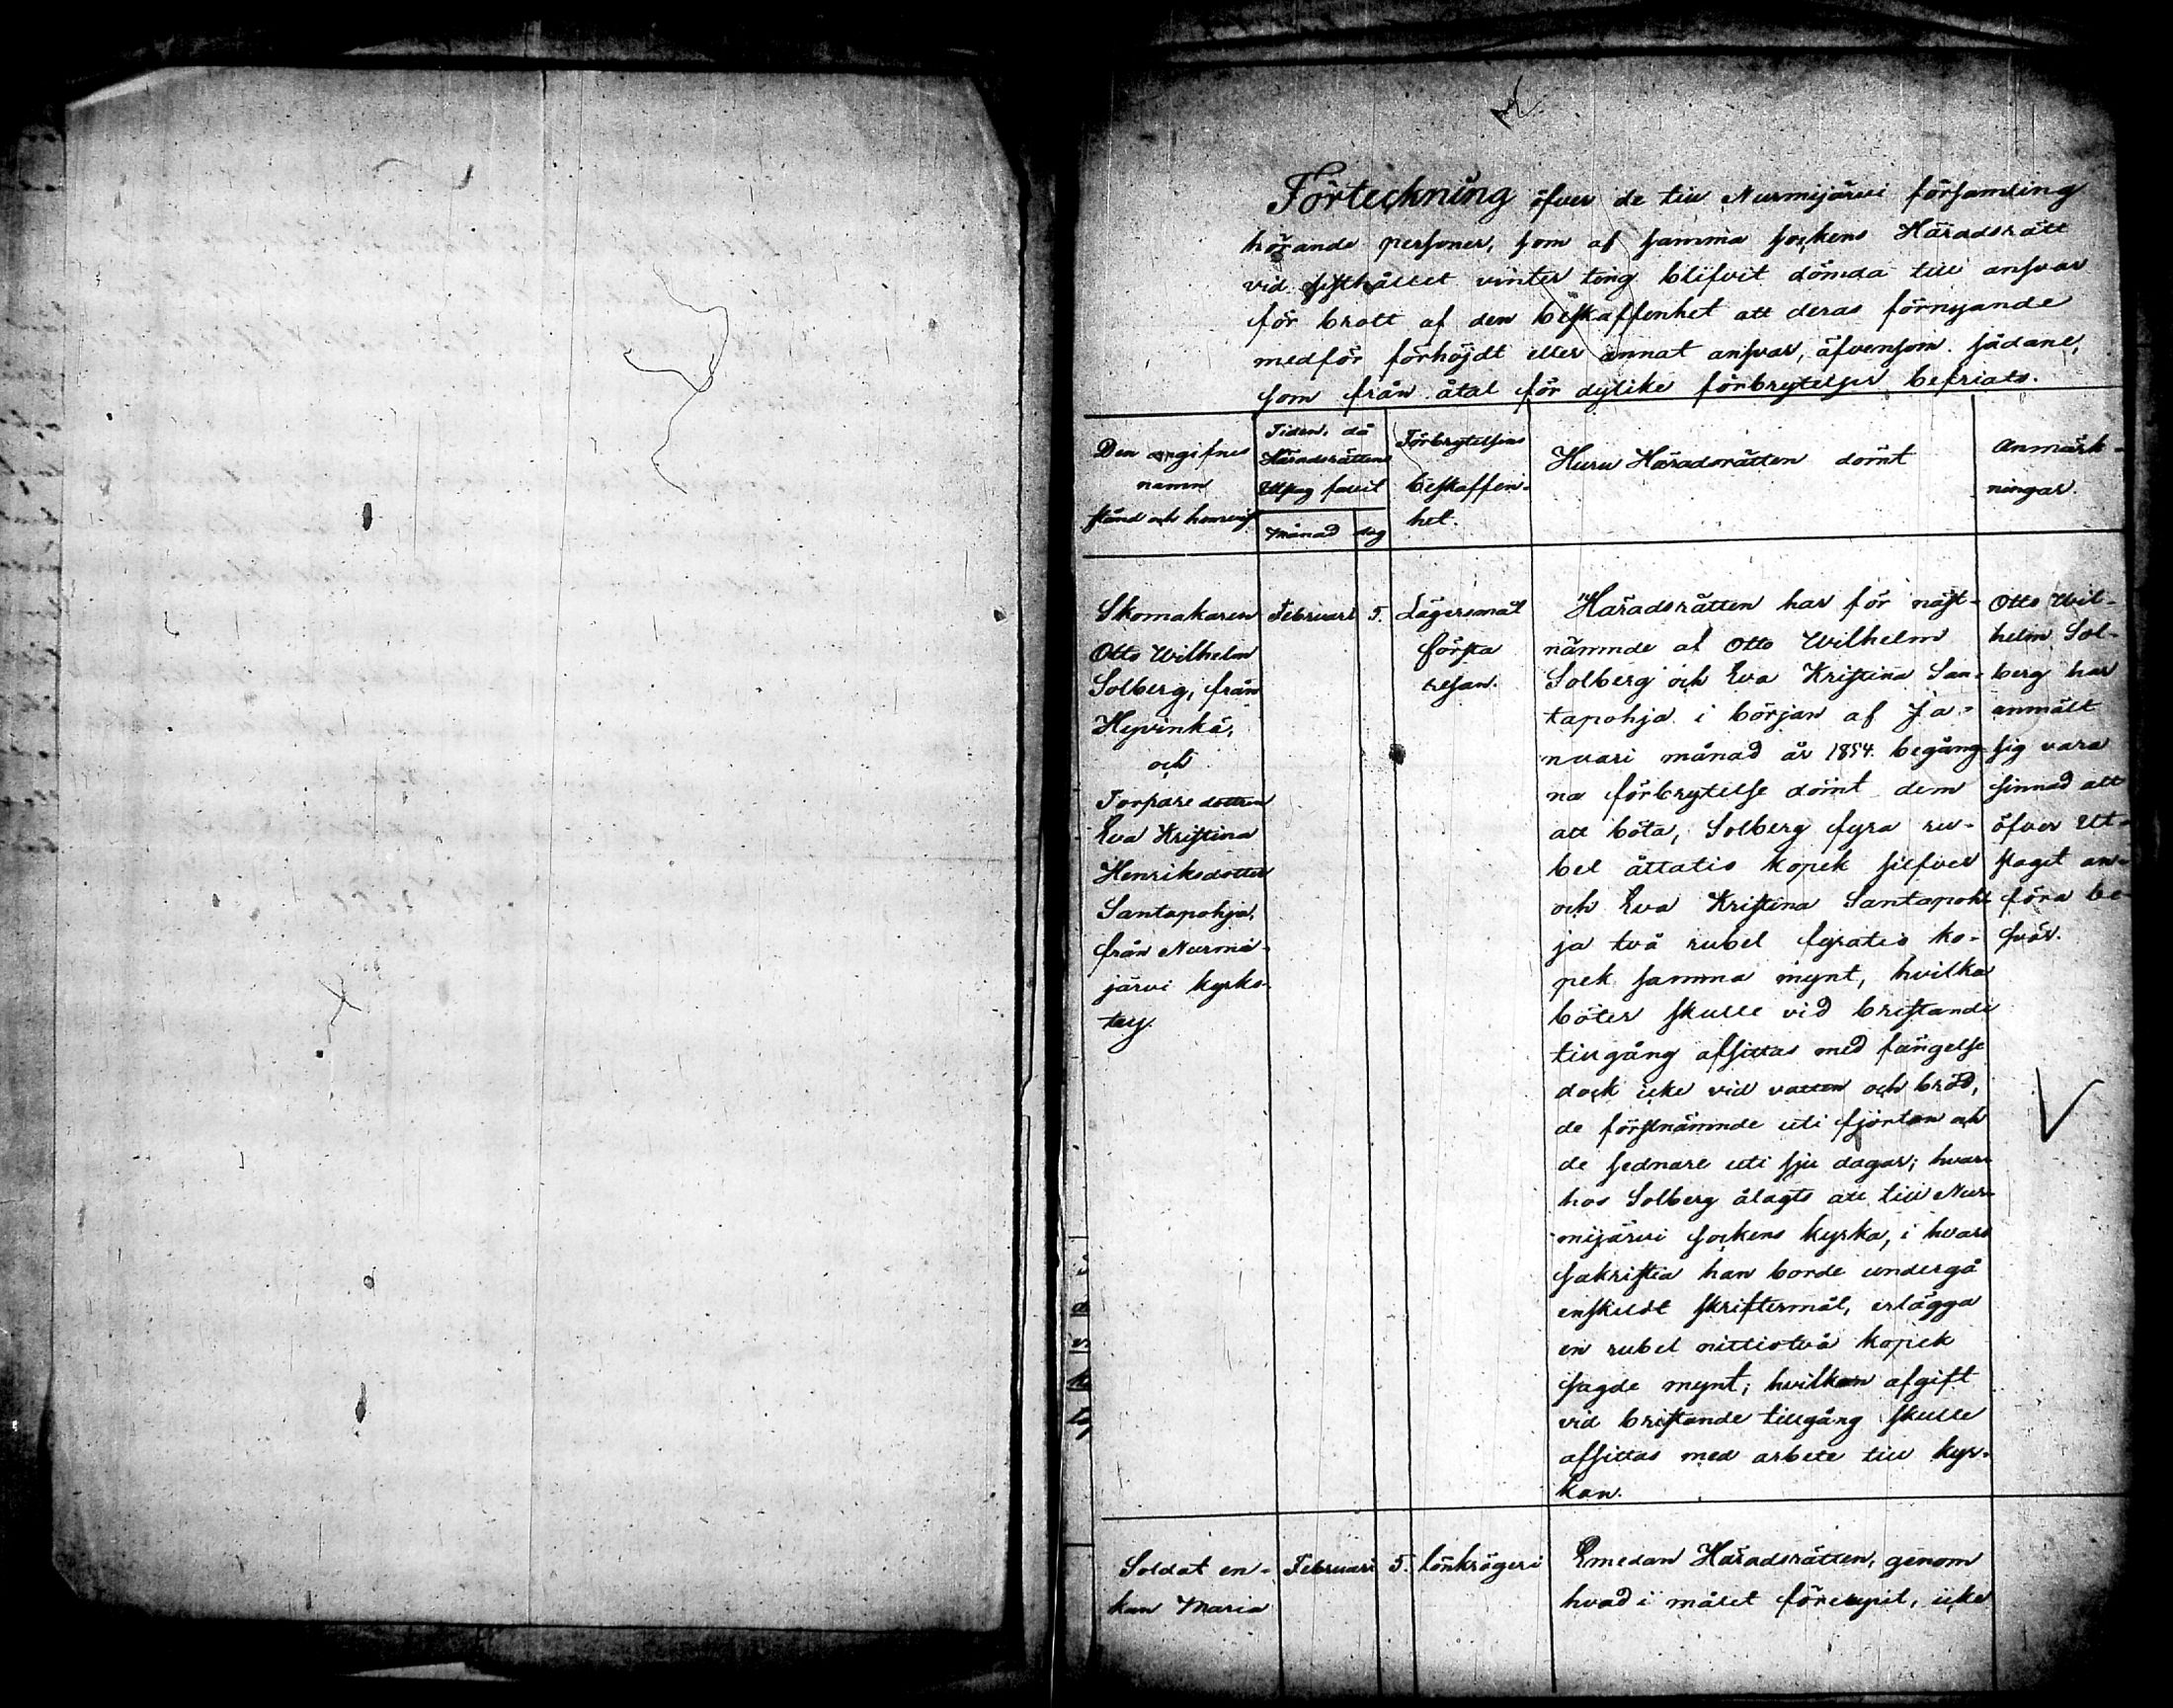 Förteckning öfver de till Nurmijärvi församling
hörande personer, som af samma sockens Häradsrätt
vid sisthållet vinter ting blifvit dömda till ansvar
för brott af den beskaffenhet att deras förnyande
medför förhöjdt eller annat ansvar, äfvensom sådane,
som från åtal för dylike förbrytelser befriats.
Den angifnes
namn
stånd och hemvist
Tiden, då
Häradsrättens
Utslag fallit
Månad dag
Förbrytelsens
beskaffen-
het.
Huru Häradsrätten dömt
Anmärk-
ningar.
Skomakaren
Otto Wilhelm
Solberg, från
Hyvinkä,
och
Torpare dottren
Eva Kristina
Henriksdotter
Santapohja,
från Nurmi-
järvi kyrko-
by.
Februari 5.
Lägersmål
första
resan.
Häradsrätten har för näst-
nämnde af Otto Wilhelm
Solberg och Eva Kristina San-
tapohja i början af Ja-
nuari månad år 1854 begång-
na förbrytelse dömt dem
att böta, Solberg fyra ru-
bel åttatio kopek silfver
och Eva Kristina Santapoh-
ja två rubel fyratio ko-
pek samma mynt, hvilka
böter skulle vid bristande
tillgång afsittas med fängelse
dock icke vid vatten och bröd,
de förstnämnde uti fjorton och
de sednare uti sju dagar; hvar-
hos Solberg ålagts att till Nur-
mijärvi sockens kyrka, i hvars
sakristia han borde undergå
enskildt skriftermål, erlägga
en rubel nittiotvå kopek
sagde mynt; hvilken afgift
vid bristande tillgång skulle
afsittas med arbete till kyr-
kan.
Otto Wil-
helm Sol-
berg har
anmält
sig vara
sinnad att
öfver Ut-
slaget an-
föra be-
svär.
Soldat en-
kan Maria
Februari 5. Lönkrögeri
Emedan Häradsrätten, genom
hvad i målet förelupit, icke